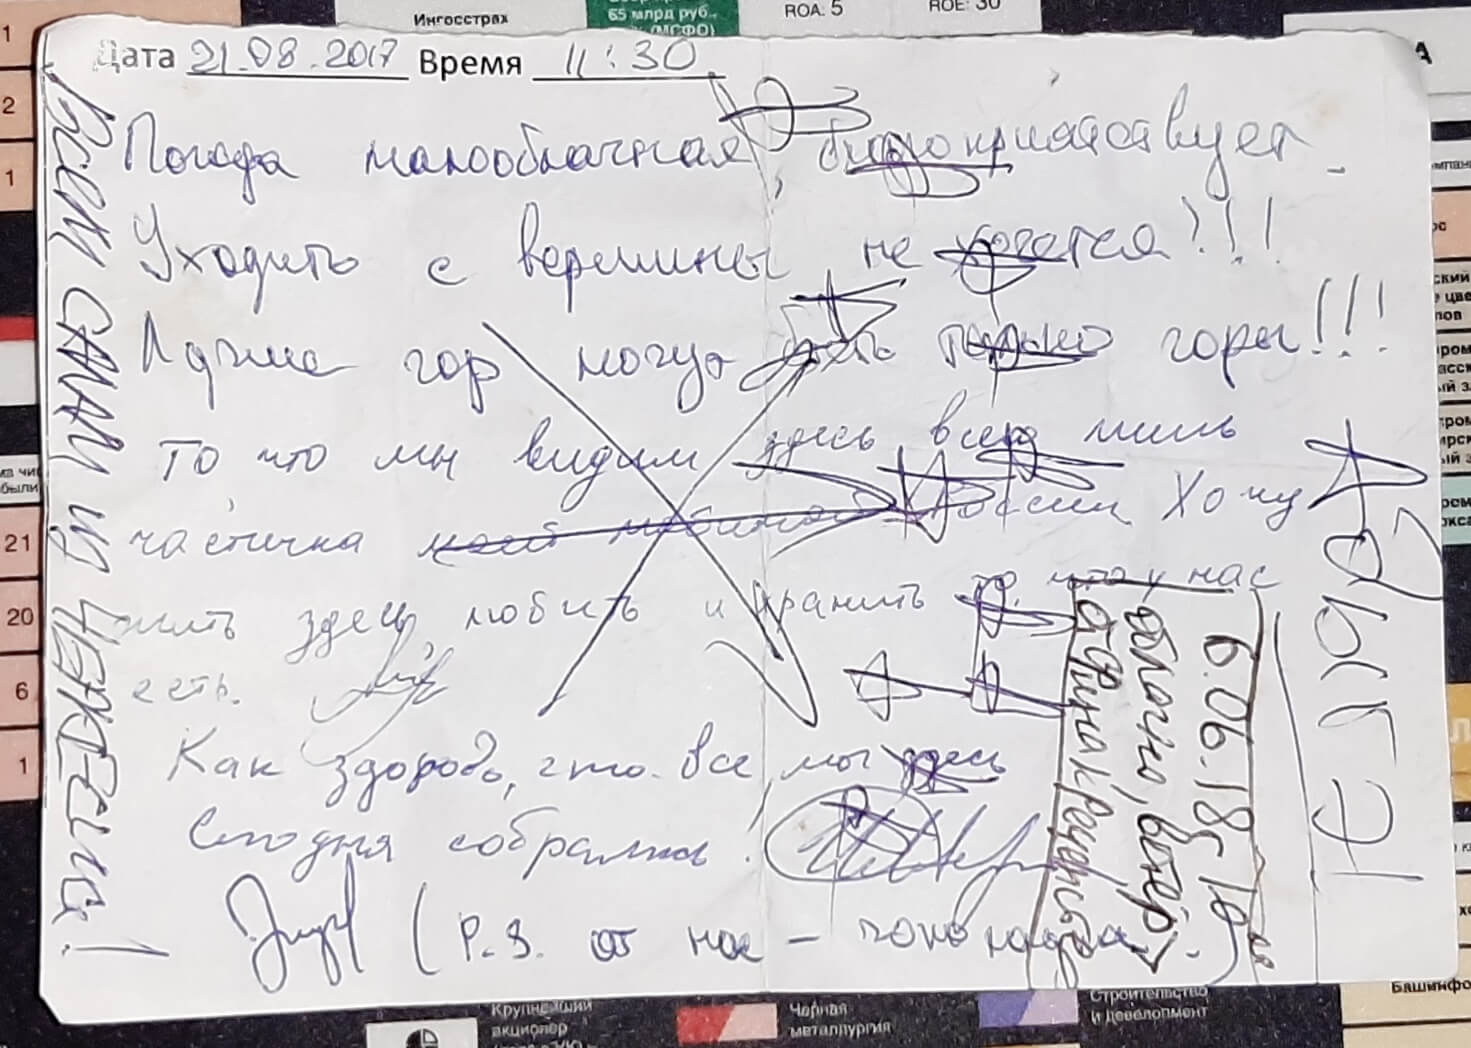 Ингосстрах
65 млрд руб.,
(МСФО)
ROA: 5
ROE: 30
Дата 21.08.2017 Время 11:30
Погода малооблачная, благоприятствует.
Уходить с вершины не хочется!!!
Лучше гор могут быть только горы!!!
То что мы видим здесь всего лишь
частичка моей любимой России. Хочу
жить здесь, любить и хранить то, что у нас
есть.
Как здорово, что все мы здесь
Сегодня собрались!
(P.S. от нас - шоколадка)
ВСЕМ САЛАМ ИЗ ЧЕРКЕССИИ!
6.06.18г
облачно, ветер
Крупнейший
акционер
Черная
металлургия
Строительство
и девелопмент
Башинфо
1
2
1
21
20
6
1